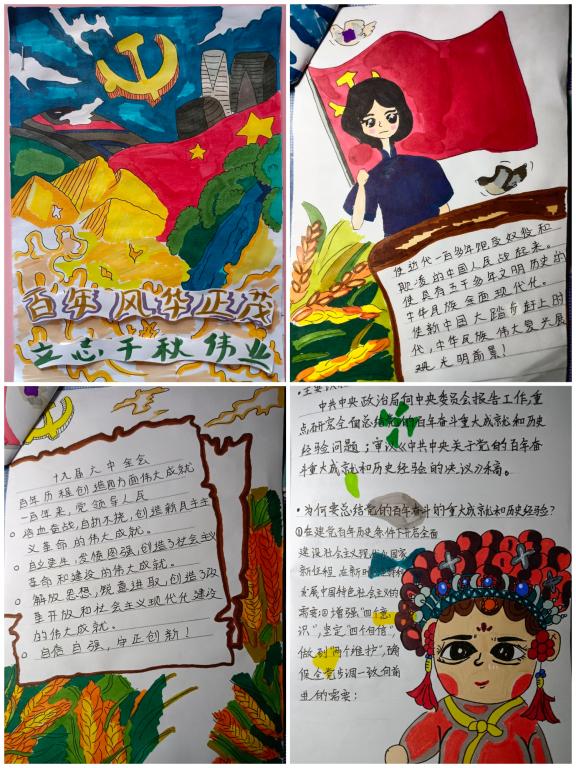 百年风华正茂
立志千秋伟业
使近代一百多年饱受奴役和
欺凌的中国人民站起来。
使具有五千多年文明历史的
中华民族全面现代化。
使新中国大踏步赶上时
代,中华民族伟大复兴展
现光明前景!
十九届六中全会
百年历程创造四方面伟大成就
一百年来,党领导人民
浴血奋战,自折不挠,创造新民主主
义革命的伟大成就。
自力更生,发愤图强,创造了社会主义
革命和建设的伟大成就。
解放思想,锐意进取,创造了改
革开放和社会主义现代化建设
的伟大成就。
自信自强,守正创新!
中共中央政治局向中央委员会报告工作,重
点研究全面总结党的百年奋斗重大成就和历史
经验问题;审议《中共中央关于党的百年奋
斗重大成就和历史经验的决议》稿。
·为何要总结党的百年奋斗的重大成就和历史经验?
①在建党百年历史条件下开启全面
建设社会主义现代化国家
新征程,在新时代坚持和
发展中国特色社会主义的
需要;②增强“四个意
识”,坚定“四个自信”,
做到“两个维护”,确
保全党步调一致向前
进的需要;